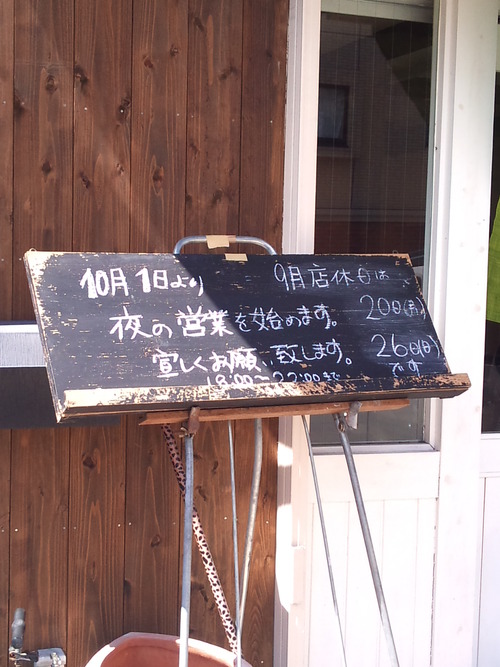 10月1日より
夜の営業を始めます。
宜しくお願い致します。
18:00～22:00まで
9月店休日は、
20日(月)
26日(日)
です